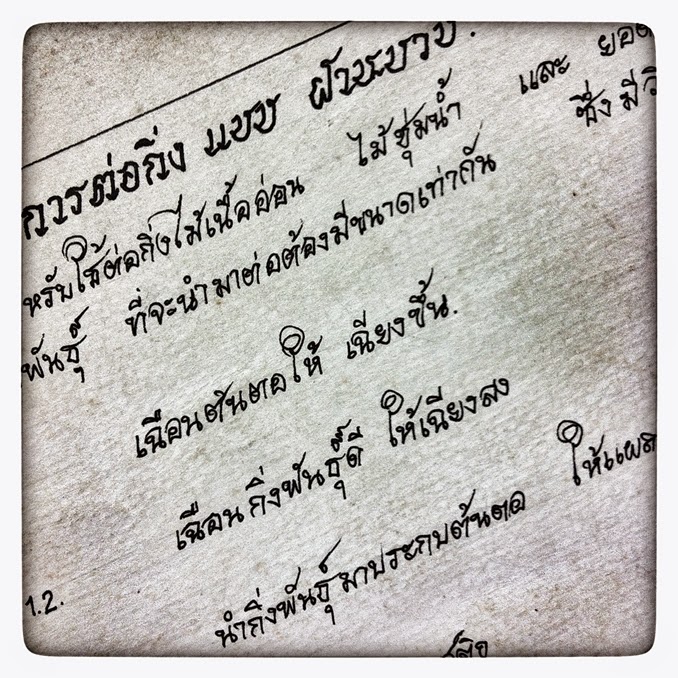 การต่อกิ่ง แบบ ฝานบวบ.
หรับใช้ต่อกิ่งไม้เนื้ออ่อน ไม้ชุ่มน้ำ และ ยอด
พันธุ์ ที่จะนำมาต่อต้องมีขนาดเท่ากัน ซึ่งมีวิ
เฉือนต้นตอให้ เฉียงขึ้น.
เฉือนกิ่งพันธุ์ดี ให้เฉียงลง
1.2. นำกิ่งพันธุ์มาประกบต้นตอ ให้แผล